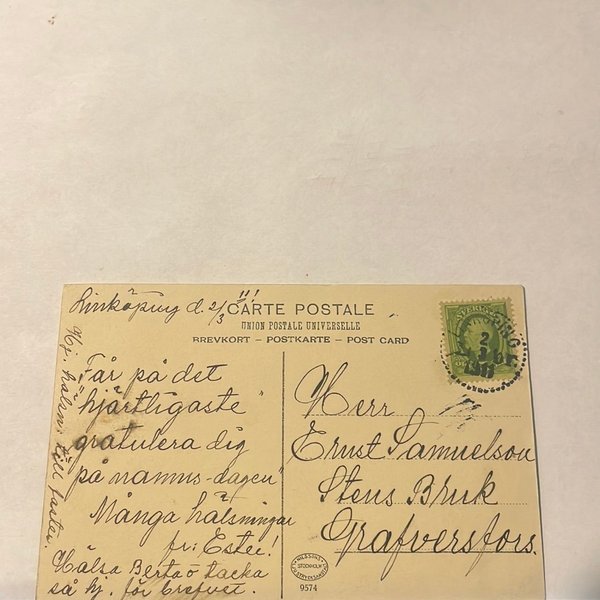 Linköping d. 2/3 11!
CARTE POSTALE
UNION POSTALE UNIVERSELLE
BREVKORT – POSTKARTE – POST CARD
Får på det
"hjärtligaste"
gratulera dig
på namns-dagen"
Många hälsningar
fr: Ester!
Hälsa Berta o tacka
så hj. för brefvet.
Hj. hälsn. till faster.
Herr
Ernst Samuelson
Stens Bruk
Grafversfors.
LINKÖPING
2
3
STOCKHOLM
9574